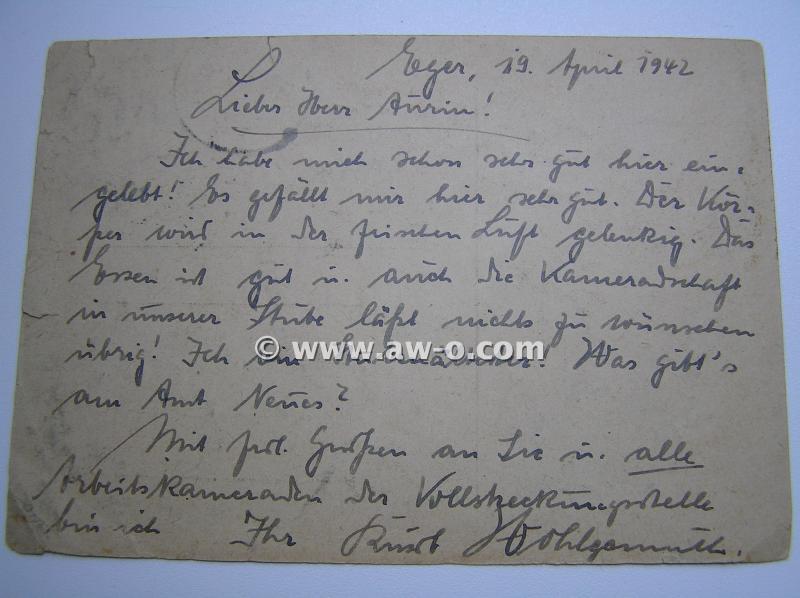 Eger, 19. April 1942
Lieber Herr Aurin!
Ich habe mich schon sehr gut hier ein-
gelebt! Es gefällt mir hier sehr gut. Der Kör-
per wird in der frischen Luft gelenkig. Das
Essen ist gut u. auch die Kameradschaft
in unserer Stube läßt nichts zu wünschen
übrig! Ich bin! Was gibt's
© www.aw-o.com
am Amt Neues?
Mit frdl. Grüßen an Sie u. alle
Arbeitskameraden der Vollstreckungsstelle
bin ich Ihr Kurt Wohlgemuth.